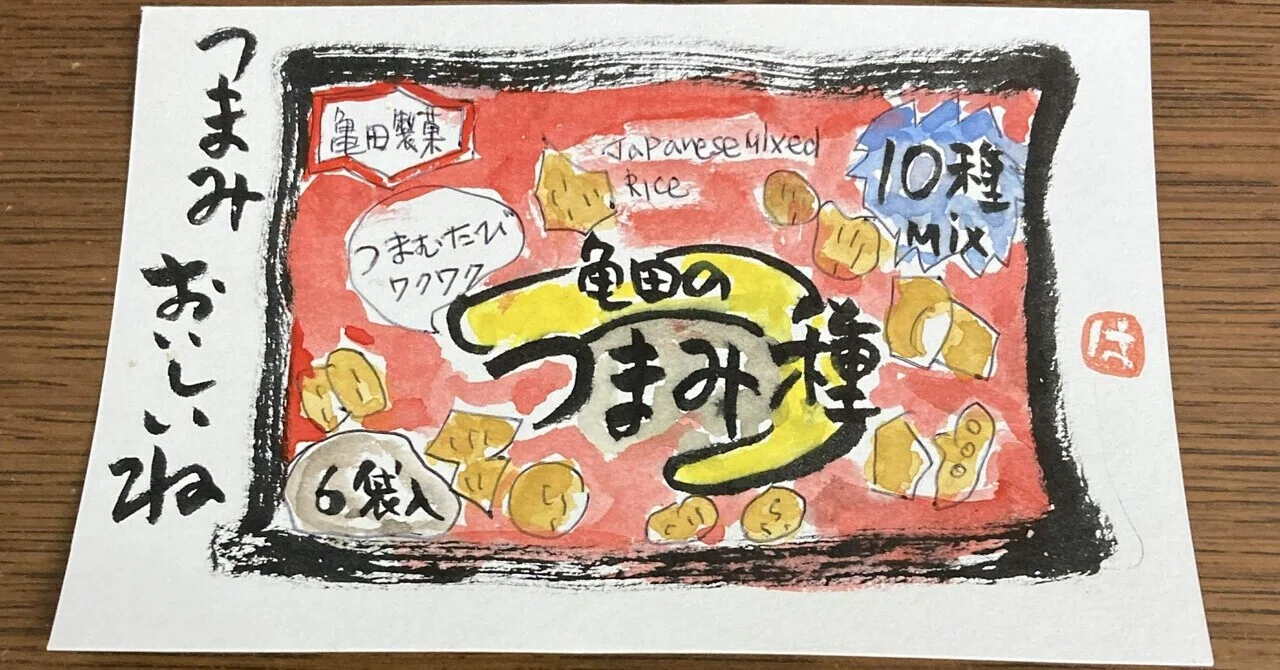 つまみ
おいしいね
亀田製菓
Japanese Mixed
Rice
10種
Mix
つまむたび
ワクワク
亀田の
つまみ種
6袋入